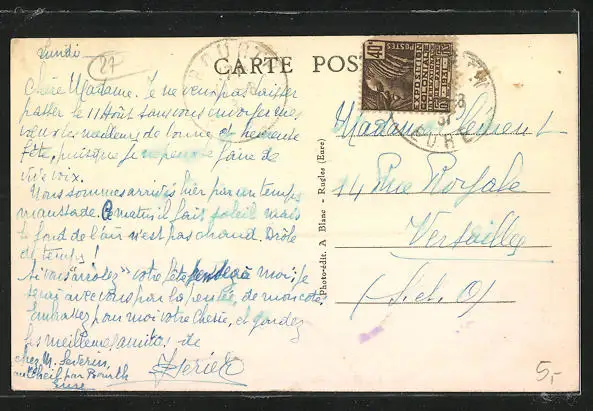 Lundi
27
CARTE POST
Chère Madame. Je ne veux pas laisser
passer le 11 Août sans vous envoyer mes
vœux les meilleurs de bonne et heureuse
fête, puisque je ne peux le faire de
vive voix.
Nous sommes arrivés hier par un temps
maussade. Ce matin il fait soleil mais
le fond de l'air n'est pas chaud. Drôle
de temps !
Si vous "arrosez" votre fête pensez à moi; je
serai avec vous par la pensée, de mon côté.
Embrassez pour moi votre , et gardez
les meilleures amitiés de
chez M. Séverin
par Bourth
Eure
40c
POSTES
EXPOSITION
COLONIALE
INTERNATIONALE
PARIS 1931
EURE
Photo-édit. A Blanc - Rugles (Eure)
Madame Clément
14 Rue Royale
Versailles
(S. et O)
5,-